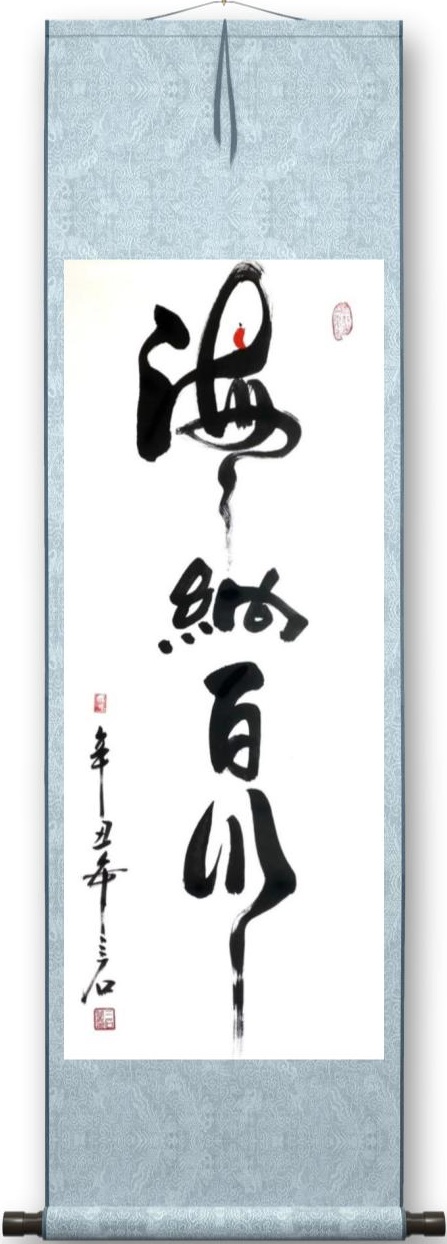 海納百川
辛丑年三石